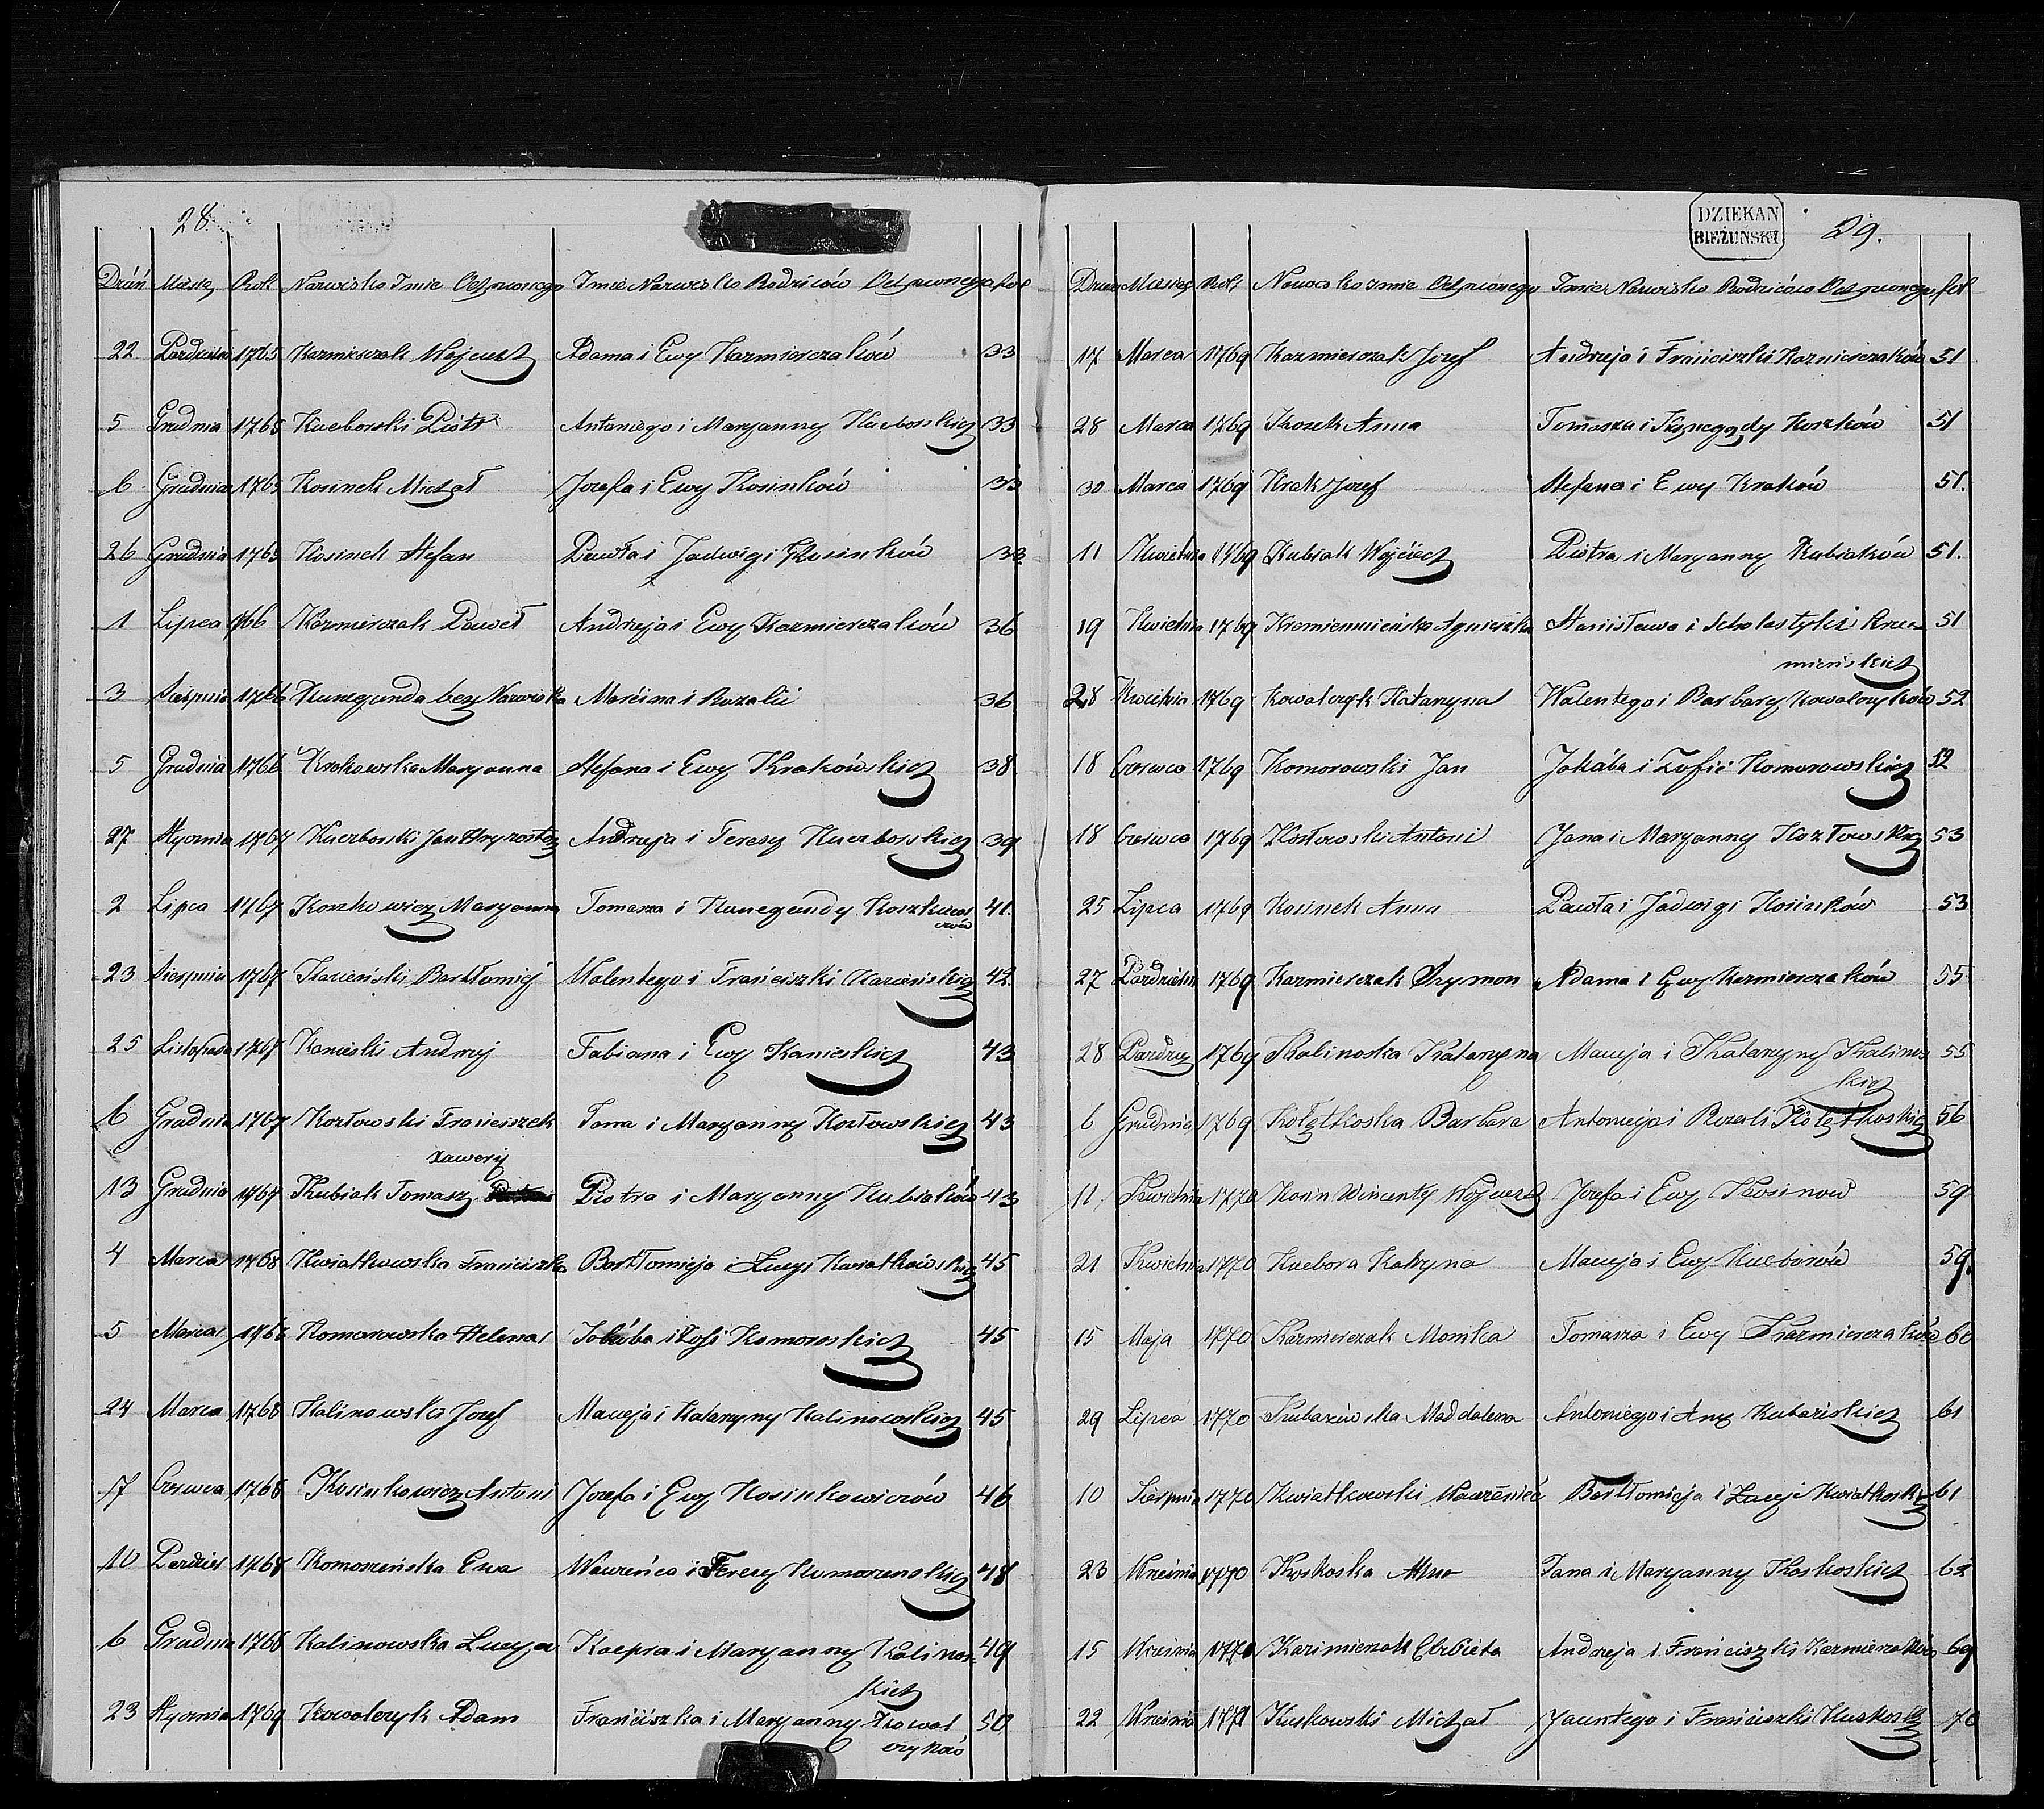 28.
Dzień Miesią Rok Nazwisko Imie Ochrzconego Imie Nazwisko Rodziców Ochrzconego fol
22 Pazdziern 1765 Kazmierczak Wojciech Adama i Ewy Kazmierczaków 33
5 Grudnia 1765 Kucborski Piotr Antoniego i Maryanny Kucborskich 33
6 Grudnia 1765 Kosinek Michał Jozefa i Ewy Kosinków 33
26 Grudnia 1765 Kosinek Stefan Pawła i Jadwigi Kosinków 33
1 Lipca 1766 Kazmierczak Paweł Andrzeja i Ewy Kazmierczaków 36
3 Sierpnia 1766 Kunegunda bez Nazwiska Marcina i Rozalii 36
5 Grudnia 1766 Krakowska Maryanna Stefana i Ewy Krakówskich 38
27 Stycznia 1767 Kuczborski Jan Hryzostom Andrzeja i Teresy Kuczborskich 39
2 Lipca 1767 Koszkowicz Maryanna Tomasza i Kunegundy Koszkowi
czów 41.
23 Sierpnia 1767 Kazieński Bartłomiej Walentego i Franciszki Kazieńskich 42.
25 Listopada 1767 Kanieski Andrzej Fabiana i Ewy Kanieskich 43
6 Grudnia 1767 Kozłowski Franciszek Jana i Maryanny Kozłowskich 43
Xawery
13 Grudnia 1767 Kubiak Tomasz Piotra i Maryanny Kubiaków 43
4 Marca 1768 Kwiatkowska Franciszka Bartłomieja i Łucyi Kwiatkówskich 45
5 Marca 1768 Komorowska Helena Jakóba i Zofi Komoroskich 45
24 Marca 1768 Kalinowski Jozef Macieja i Katarzyny Kalinowskich 45
7 Czerwca 1768 Kosinkowicz Antoni Jozefa i Ewy Kosinkowiczów 46
10 Pazdzier 1768 Komoszeńska Ewa Wawrzeńca i Teresy Komoszenskich 48
6 Grudnia 1768 Kalinowska Łucyja Kacpra i Maryanny Kalinos-
kich 49
23 Stycznia 1769 Kowalczyk Adam Franciszka i Maryanny Kowal
czyków 50
DZIEKAN
BIEŻUŃSKI
29.
Dzień Miesiąc Rok Nazwisko Imie Ochrzconego Imie Nazwisko Rodziców Ochrzconego fol
17 Marca 1769 Kazmierczak Jozef Andrzeja i Franciszki Kazmierczaków 51
28 Marca 1769 Koszek Anna Tomasza i Kunegundy Koszków 51
30 Marca 1769 Krak Jozef Stefana i Ewy Kraków 51.
11 Kwietnia 1769 Kubiak Wojciech Piotra i Maryanny Kubiaków 51.
19 Kwietnia 1769 Krzemiemieńska Agnieszka Stanisława i Scholastyki Krze-
mieńskich 51
28 Kwietnia 1769 Kowalczyk Katarzyna Walentego i Barbary Kowalczyków 52
18 Czerwca 1769 Komorowski Jan Jakóba i Zofii Komorowskich 52
18 Czerwca 1769 Kozłowski Antoni Jana i Maryanny Kozłowskich 53
25 Lipca 1769 Kosinek Anna Pawła i Jadwigi Kosinków 53
27 Pazdziern 1769 Kazmierczak Szymon Adama i Ewy Kazmierczaków 55
28 Pazdzier 1769 Kalinoska Katarzyna Macieja i Katarzyny Kalinos
kich 55
6 Grudnia 1769 Kołątkoska Barbara Antoniego i Rozalii Kołątkoskich 56
11 Kwietnia 1770 Kosin Wincenty Wojciech Jozefa i Ewy Kosinow 59
21 Kwietnia 1770 Kucbora Katrzyna Macieja i Ewy Kucborów 59.
15 Maja 1770 Kazmierczak Monika Tomasza i Ewy Kazmierczaków 60
29 Lipca 1770 Kubazińska Maddalena Antoniego i Any Kubazińskich 61
10 Sierpnia 1770 Kwiatkowski Wawrzeniec Bartłomieja i Łucyi Kwiatkoskich 61
23 Wrzesnia 1770 Koskoska Anna Jana i Maryanny Koskoskich 62
15 Wrzesnia Kazimierzak Elzbieta Andrzeja i Franciszki Kazmierczaków 69
22 Wrzesnia 1771 Kuskowski Michał Jacentego i Franciszki Kuskoskich 70